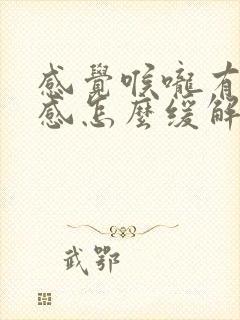 感覺喉嚨有
感怎麼緩解
武鄂